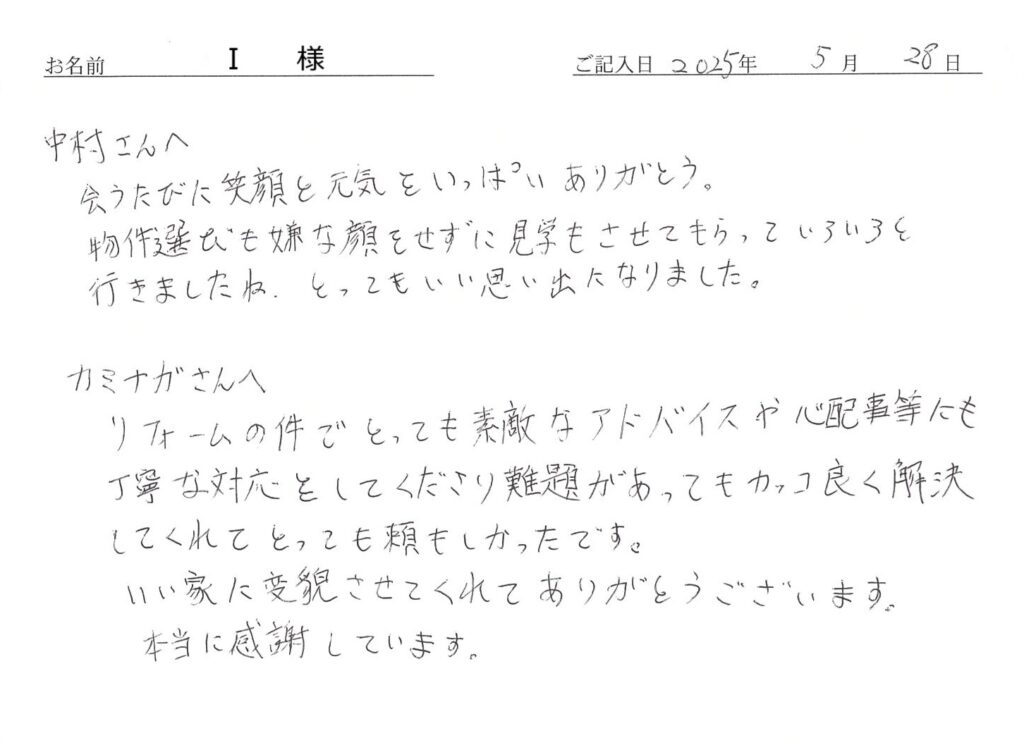 お名前 I 様 ご記入日 2025年 5月 28日
中村さんへ
会うたびに笑顔と元気をいっぱいありがとう。
物件選びも嫌な顔をせずに見学もさせてもらっていろいろと
行きましたね. とってもいい思い出になりました。
カミナガさんへ
リフォームの件でとっても素敵なアドバイスや心配事等にも
丁寧な対応をしてくださり難題があってもカッコ良く解決
してくれてとっても頼もしかったです。
いい家に変貌させてくれてありがとうございます。
本当に感謝しています。